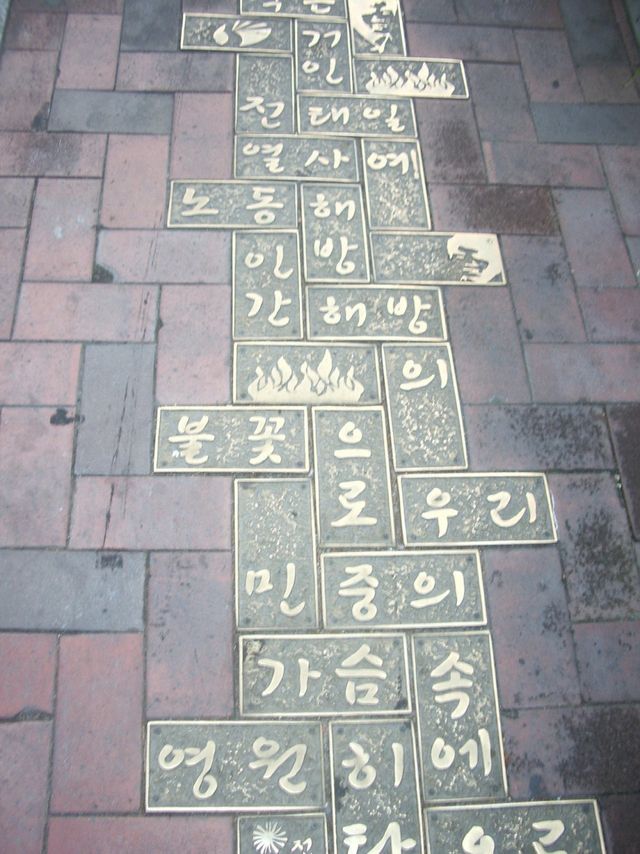 거인
전태일
열사예
노동해방
인간해방
의
불꽃으로
우리
민중의
가슴속에
영원히
전